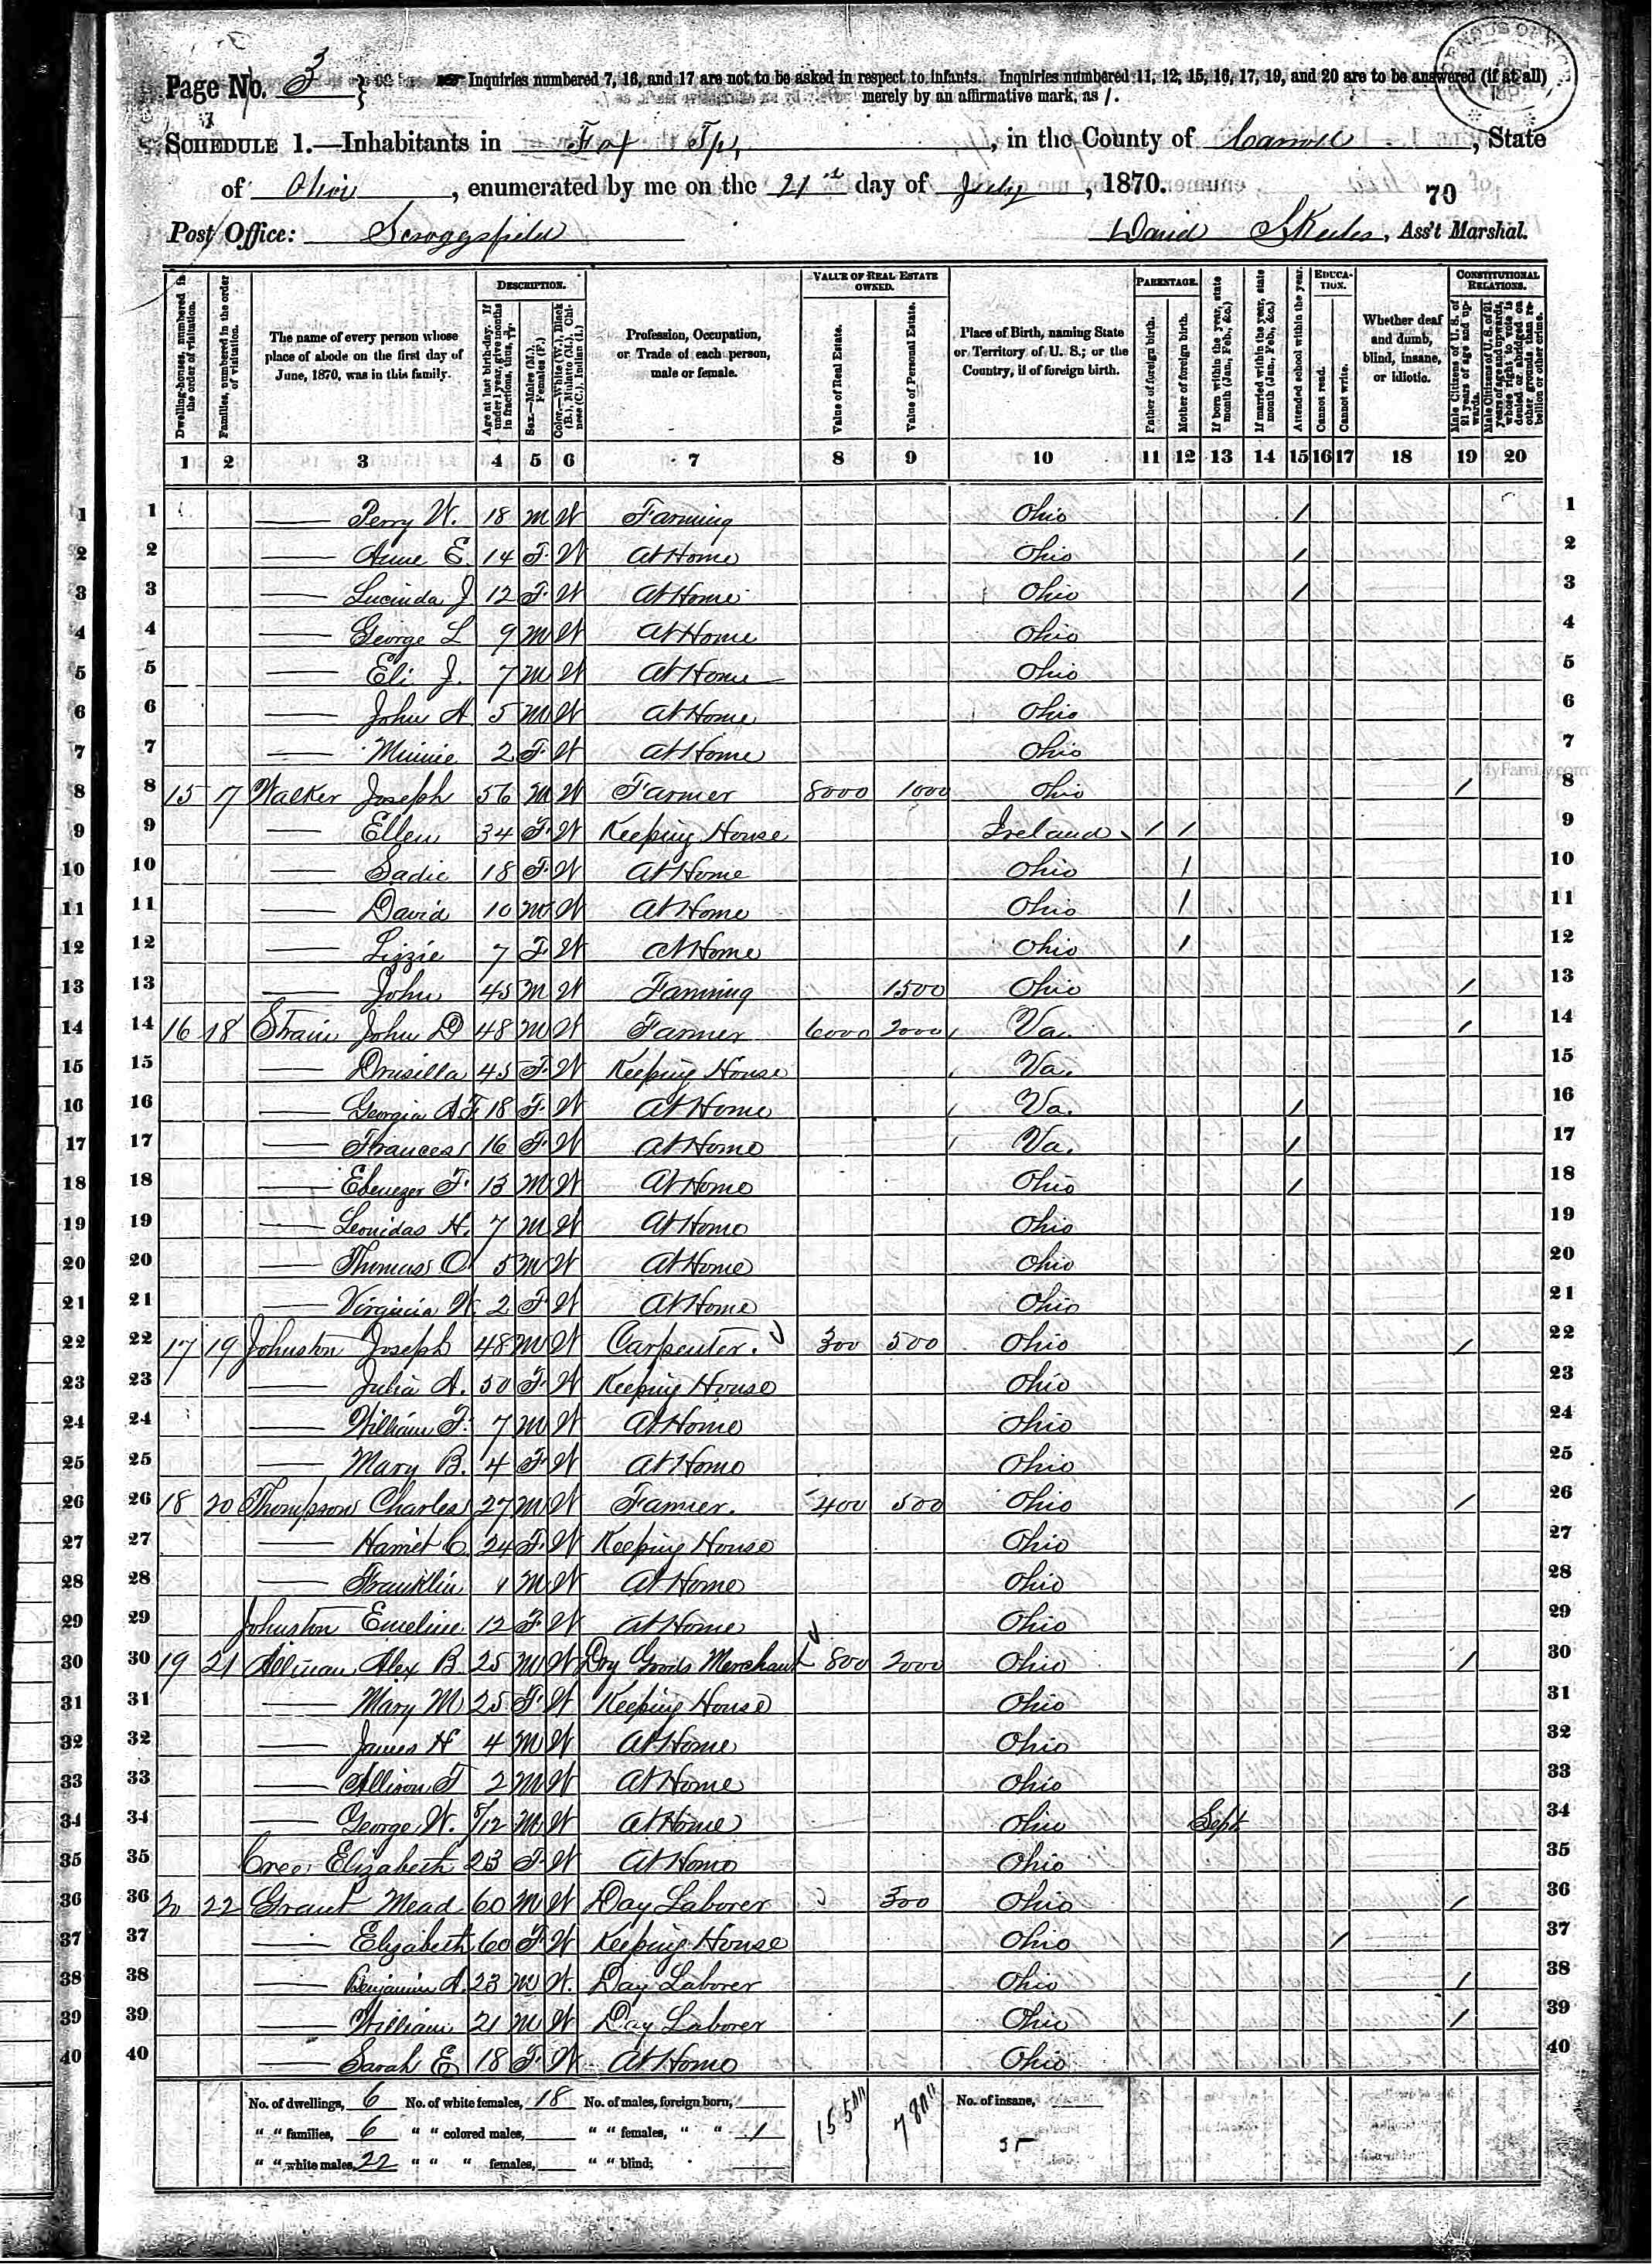 Page No. 3
Inquiries numbered 7, 16, and 17 are not to be asked in respect to infants. Inquiries numbered 11, 12, 15, 16, 17, 19, and 20 are to be answered (if at all)
merely by an affirmative mark, as /.
SCHEDULE 1.—Inhabitants in Fox Tp, in the County of Carroll, State
of Ohio, enumerated by me on the 21st day of July, 1870.
70
Post Office: Scroggsfield
David Skeeles, Ass't Marshal.
Dwelling-houses, numbered in the order of visitation.
Families, numbered in the order of visitation.
The name of every person whose place of abode on the first day of June, 1870, was in this family.
DESCRIPTION.
Age at last birth-day. If under 1 year, give months in fractions, thus, 3/12.
Sex.—Males (M.), Females (F.)
Color.—White (W.), Black (B.), Mulatto (M.), Chinese (C.), Indian (I.)
Profession, Occupation, or Trade of each person, male or female.
VALUE OF REAL ESTATE OWNED.
Value of Real Estate.
Value of Personal Estate.
Place of Birth, naming State or Territory of U. S.; or the Country, if of foreign birth.
PARENTAGE.
Father of foreign birth.
Mother of foreign birth.
If born within the year, state month (Jan., Feb., &c.)
If married within the year, state month (Jan., Feb., &c.)
Attended school within the year.
EDUCATION.
Cannot read.
Cannot write.
Whether deaf and dumb, blind, insane, or idiotic.
CONSTITUTIONAL RELATIONS.
Male Citizens of U. S. of 21 years of age and upwards.
Male Citizens of U. S. of 21 years of age and upwards, whose right to vote is denied or abridged on other grounds than rebellion or other crime.
1 2 3 4 5 6 7 8 9 10 11 12 13 14 15 16 17 18 19 20
1 1 — Perry W. 18 M W Farming Ohio / 1
2 2 — Anne E. 14 F. W At Home Ohio / 2
3 3 — Lucinda J 12 F. W At Home Ohio / 3
4 4 — George L 9 M W At Home Ohio 4
5 5 — Eli J. 7 M W At Home Ohio 5
6 6 — John A 5 M W At Home Ohio 6
7 7 — Minnie 2 F. W At Home Ohio 7
MyFamily.com
8 8 15 17 Walker Joseph 56 M W Farmer 8000 1000 Ohio / 8
9 9 — Ellen 34 F. W Keeping House Ireland / / 9
10 10 — Sadie 18 F. W At Home Ohio / 10
11 11 — David 10 M W At Home Ohio / 11
12 12 — Lizzie 7 F. W At Home Ohio / 12
13 13 — John 45 M W Farming 1500 Ohio / 13
14 14 16 18 Strain John D 48 M W Farmer 6000 2000 Va. / 14
15 15 — Drusilla 45 F. W Keeping House Va. 15
16 16 — Georgia A F 18 F. W At Home Va. / 16
17 17 — Frances 16 F W At Home Va. / 17
18 18 — Ebenezer F. 13 M W At Home Ohio / 18
19 19 — Leonidas H. 7 M W At Home Ohio 19
20 20 — Thomas O 5 M W At Home Ohio 20
21 21 — Virginia W. 2 F. W At Home Ohio 21
22 22 17 19 Johnston Joseph 48 M W Carpenter. 300 500 Ohio / 22
23 23 — Julia A. 50 F. W Keeping House Ohio 23
24 24 — William F. 7 M W At Home Ohio 24
25 25 — Mary B. 4 F W At Home Ohio 25
26 26 18 20 Thompson Charles 27 M W Farmer. 400 500 Ohio / 26
27 27 — Harriet C. 24 F. W Keeping House Ohio 27
28 28 — Franklin M W At Home Ohio 28
29 29 Johnston Emeline 12 F. W At Home Ohio 29
30 30 19 21 Allman Alex B. 25 M W Dry Goods Merchant 800 2000 Ohio / 30
31 31 — Mary M 25 F. W Keeping House Ohio 31
32 32 — James H 4 M W At Home Ohio 32
33 33 — Allison F 2 M W At Home Ohio 33
34 34 — George W. 8/12 M W At Home Ohio Sept. 34
35 35 Cree Elizabeth 23 F. W At Home Ohio 35
36 36 20 22 Grant Mead 60 M W Day Laborer 300 Ohio / 36
37 37 — Elizabeth 60 F W Keeping House Ohio / 37
38 38 — Benjamin A. 23 M W. Day Laborer Ohio / 38
39 39 — William 21 M W Day Laborer Ohio / 39
40 40 — Sarah E 18 F. W. At Home Ohio 40
No. of dwellings, 6 No. of white females, 18 No. of males, foreign born, No. of insane,
" " families, 6 " " colored males, " " females, " " 1
" " white males, 22 " " " females, " " blind,